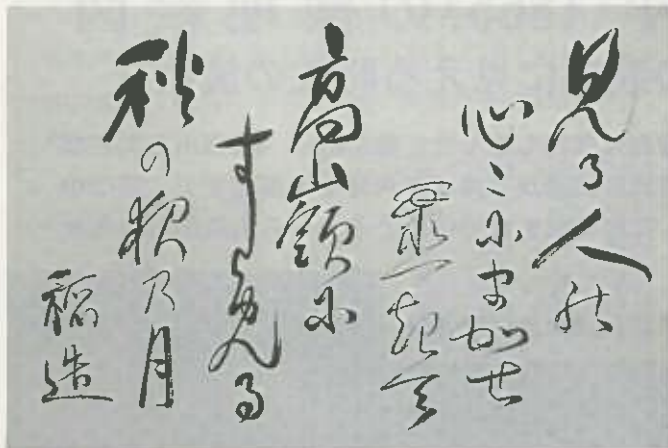 見る人の
心々にまかせ
置きて
高嶺に
すめる
秋の夜の月
稲造